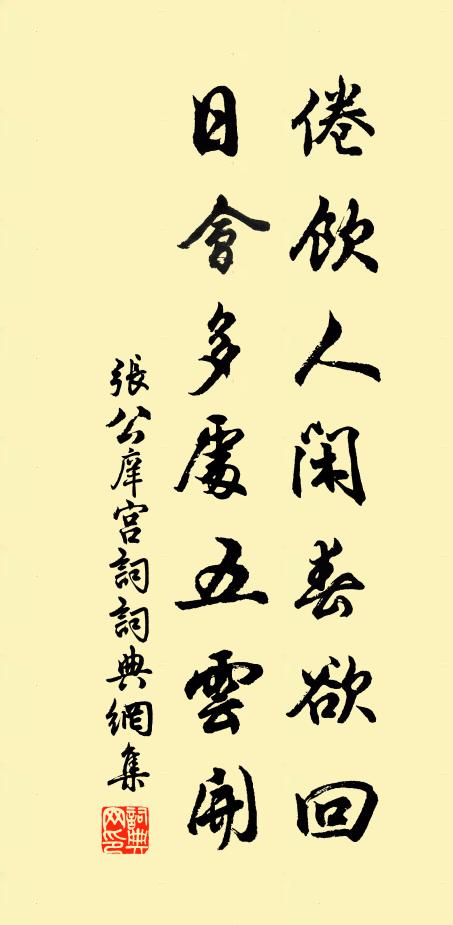 倦飲人閑春欲回
日會多處五雲開
張公庠宮詞詞典網集
詞典網印